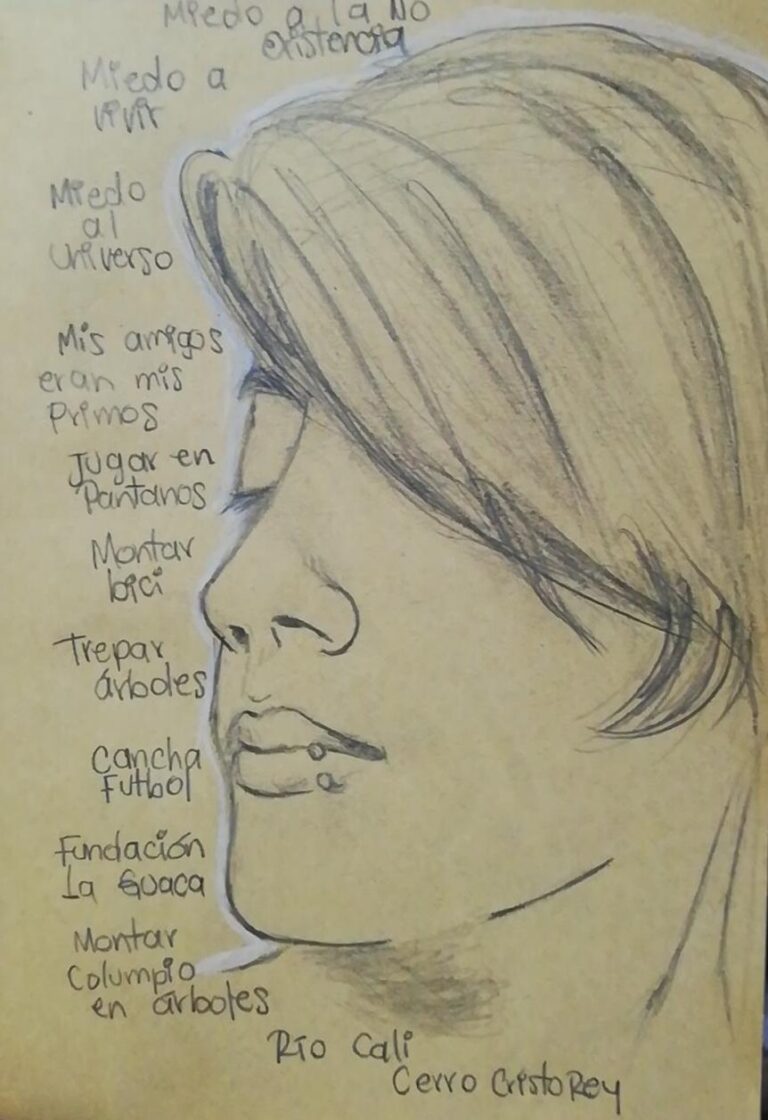 Miedo a la No
existencia
Miedo a
vivir
Miedo
al
Universo
Mis amigos
eran mis
Primos
Jugar en
Pantanos
Montar
bici
Trepar
árboles
Cancha
Futbol
Fundación
La Guaca
Montar
Columpio
en árboles
Río Cali
Cerro Cristo Rey